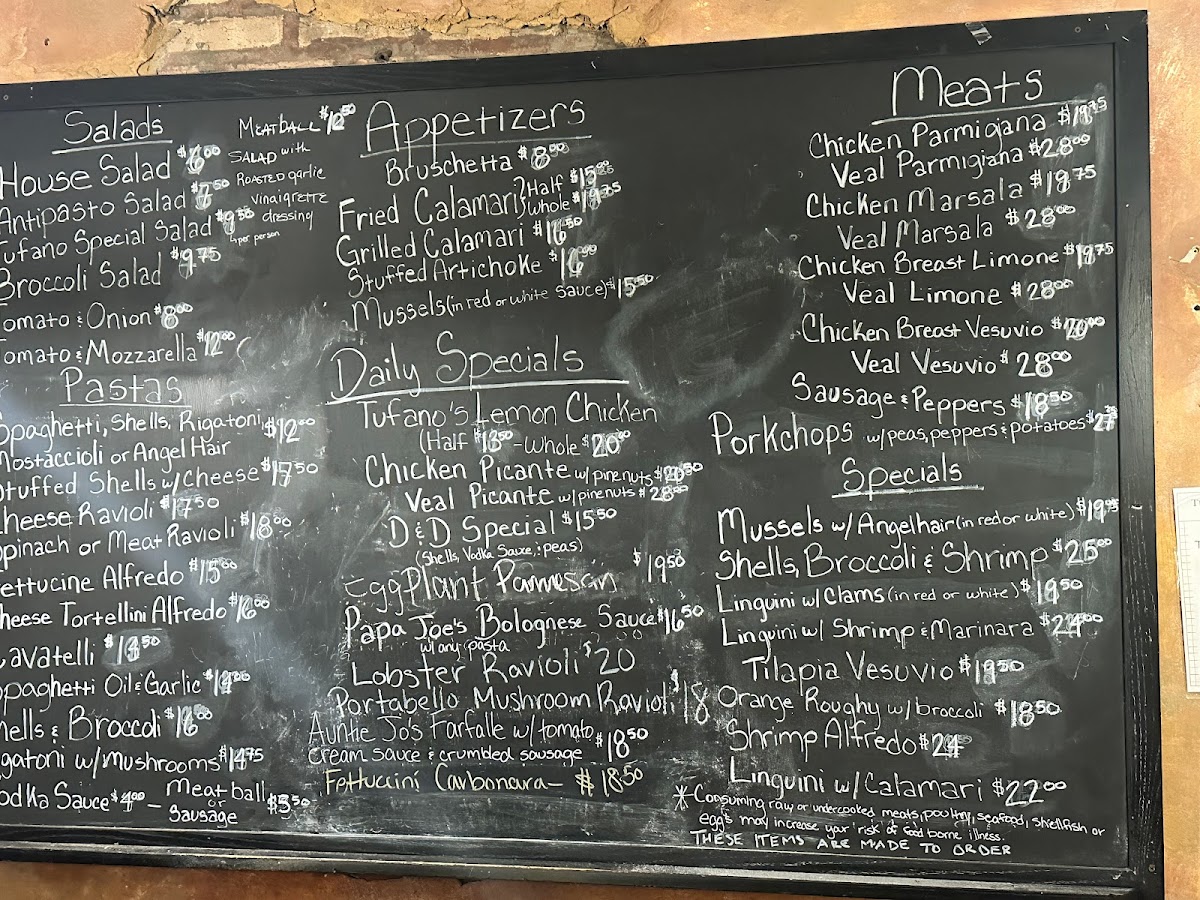 Salads
House Salad $6.00
Antipasto Salad $7.50
Tufano Special Salad $9.50
4 per person
Broccoli Salad $9.75
Tomato & Onion $8.00
Tomato & Mozzarella $12.00
MEATBALL $12.50
SALAD with
ROASTED garlic
vinaigrette
dressing
Pastas
Spaghetti, Shells, Rigatoni, $12.00
Mostaccioli or Angel Hair
Stuffed Shells w/ Cheese $17.50
Cheese Ravioli $17.50
Spinach or Meat Ravioli $18.00
Fettucine Alfredo $15.00
Cheese Tortellini Alfredo $16.00
Cavatelli $13.50
Spaghetti Oil & Garlic
Shells & Broccoli $16.00
Rigatoni w/ mushrooms $14.75
Vodka Sauce $4.00 – Meatball
or
Sausage $5.50
Appetizers
Bruschetta $8.00
Fried Calamari } Half
Whole $19.75
Grilled Calamari $16.50
Stuffed Artichoke
Mussels (in red or white Sauce) $15.50
Daily Specials
Tufano's Lemon Chicken
(Half – Whole $20.00
Chicken Picante w/ pine nuts
Veal Picante w/ pinenuts $28.00
D & D Special $15.50
(Shells, Vodka Sauce, & peas)
EggPlant Parmesan $19.50
Papa Joe's Bolognese Sauce $16.50
w/ any pasta
Lobster Ravioli $20
Portabello Mushroom Ravioli $18
Auntie Jo's Farfalle w/ tomato
Cream sauce & crumbled sausage $18.50
Fettuccini Carbonara – $18.50
Meats
Chicken Parmigiana $19.75
Veal Parmigiana $28.00
Chicken Marsala $19.75
Veal Marsala $28.00
Chicken Breast Limone $19.75
Veal Limone $28.00
Chicken Breast Vesuvio $20.00
Veal Vesuvio $28.00
Sausage & Peppers $18.50
Porkchops w/ peas, peppers & potatoes
Specials
Mussels w/ Angelhair (in red or white) $19.95
Shells, Broccoli & Shrimp $25.00
Linguini w/ Clams (in red or white) $19.50
Linguini w/ Shrimp & Marinara $24.00
Tilapia Vesuvio $19.50
Orange Roughy w/ broccoli $18.50
Shrimp Alfredo $24
Linguini w/ Calamari $22.00
* Consuming raw or undercooked meats, poultry, seafood, shellfish or
egg's may increase your risk of food borne illness.
THESE ITEMS ARE MADE TO ORDER